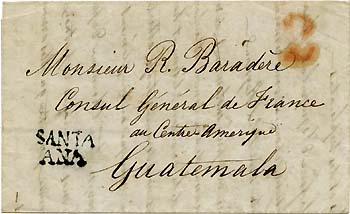 2
Monsieur R. Baradère
Consul Général de France
au Centre Amerique
Guatemala
SANTA
ANA